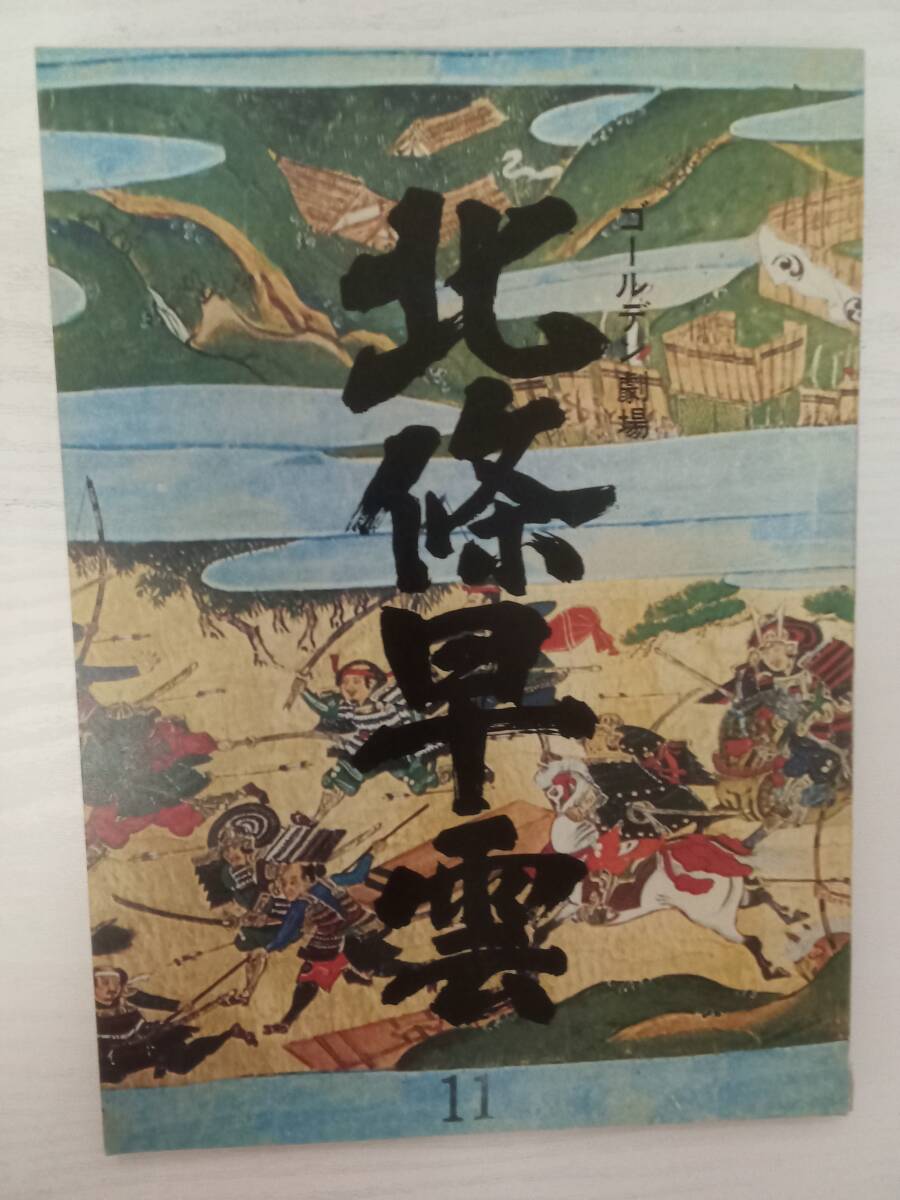 ゴールデン劇場
北條早雲
11